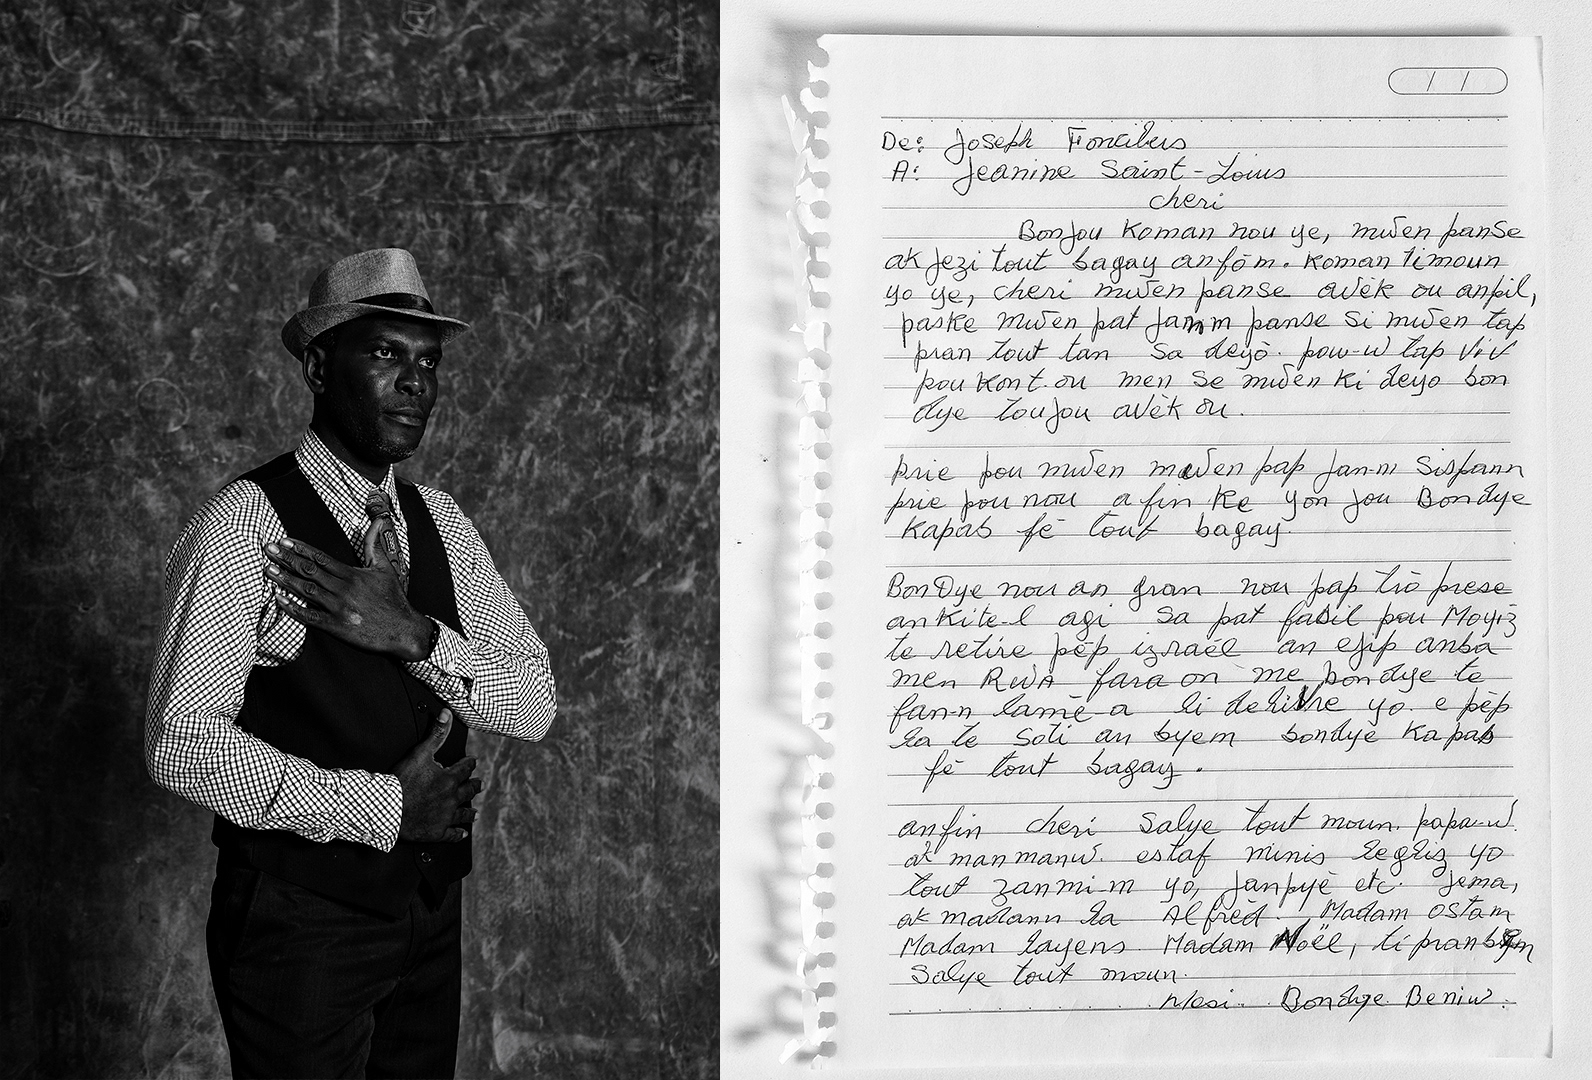 De: Joseph Foncibus
A: Jeanine Saint-Louis
cheri
Bonjou Koman nou ye, mwen panse
ak jezi tout bagay anfòm. Koman timoun
yo ye, cheri mwen panse avèk ou anpil,
paske mwen pat janm panse si mwen tap
pran tout tan sa deyò. pou-w tap viv
pou kont ou men se mwen ki deyo bon
dye toujou avèk ou.
Prie pou mwen mwen pap jan-m sispann
prie pou nou a fin ke yon jou Bondye
Kapab fè tout bagay.
BonDye nou an gran nou pap trò prese
an Kite-l agi sa pat fasil pou Moyiz
te retire pèp izraèl an ejip anba
men RWA fara on me bondye te
fan-n lamè a li delivre yo. e pèp
la te soti an byem bondye Kapab
fè tout bagay.
anfin cheri Salye tout moun. papa-w.
ak manmanw. estaf minis legliz yo
tout zanmi-m yo, janpyè etc. jema,
ak madann la Alfrèd. Madam Ostam
Madam layens. Madam Noël, ti pran
Salye tout moun.
Mesi. Bondye Beniw.